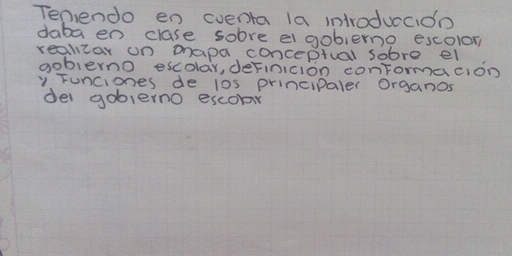 Teniendo en cuenta la introducción
daba en clase sobre el gobierno escolar,
realizar un mapa conceptual sobre el
gobierno escolar, definición conformación
y Funciones de los principales Organos
del gobierno escolar